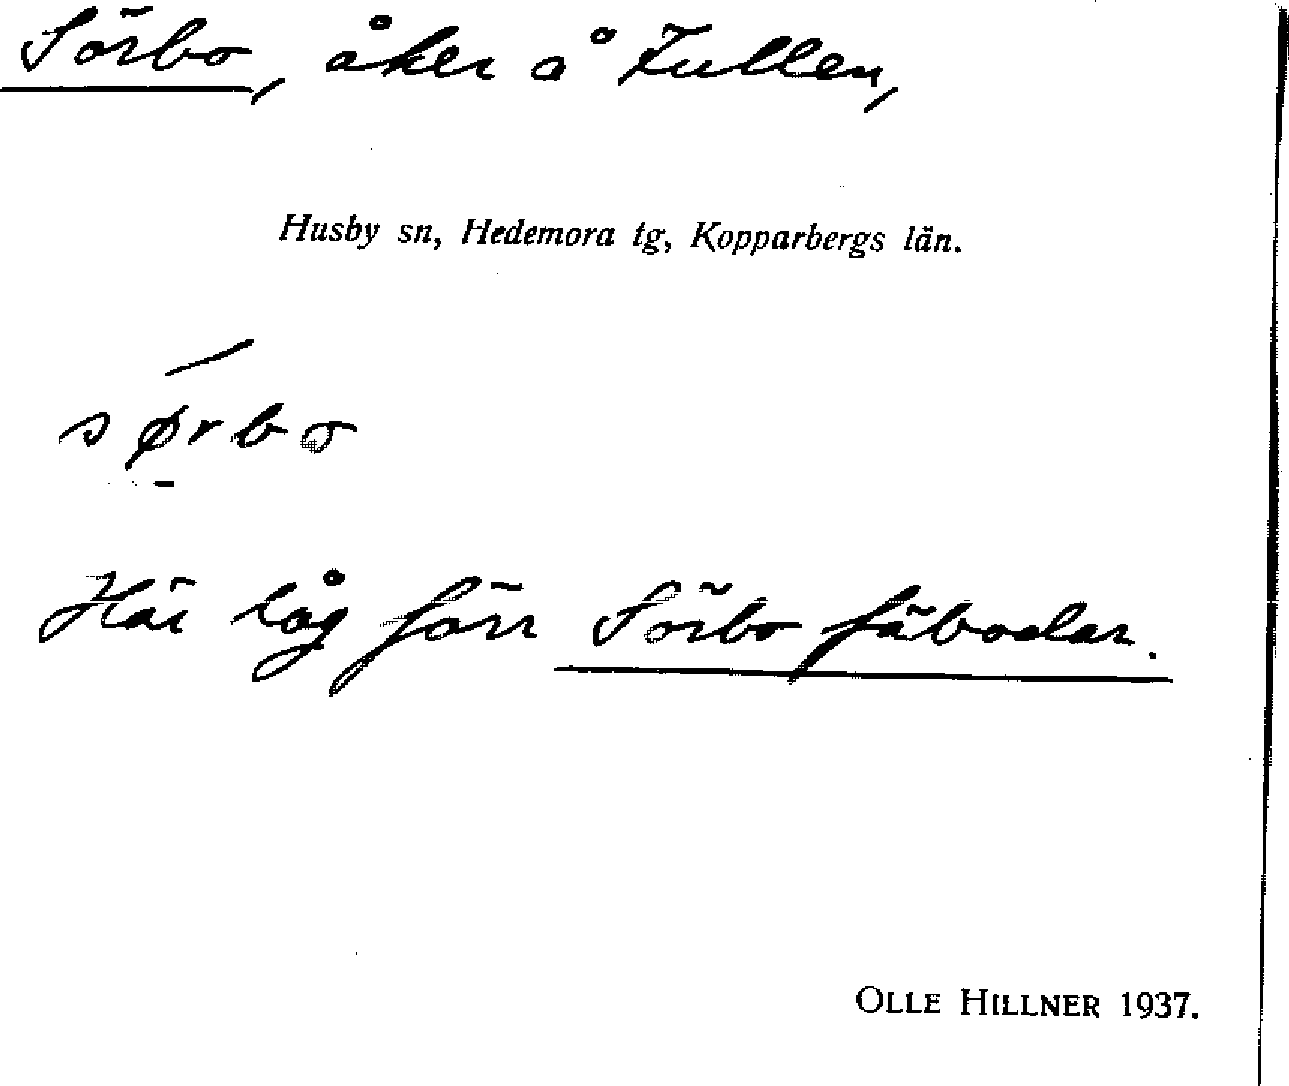 Sörbo, åker å Fullen,
Husby sn, Hedemora tg, Kopparbergs län.
sørbo
Här låg förr Sörbo fäbodar.
OLLE HILLNER 1937.